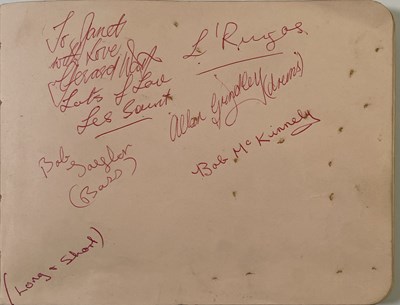 To Janet
with Love
Lots of Love
Les Saint
L' Ringos
Allan Grindley
(drums)
Bob Taylor
(Bass)
Bob McKinnely
(Long & Short)